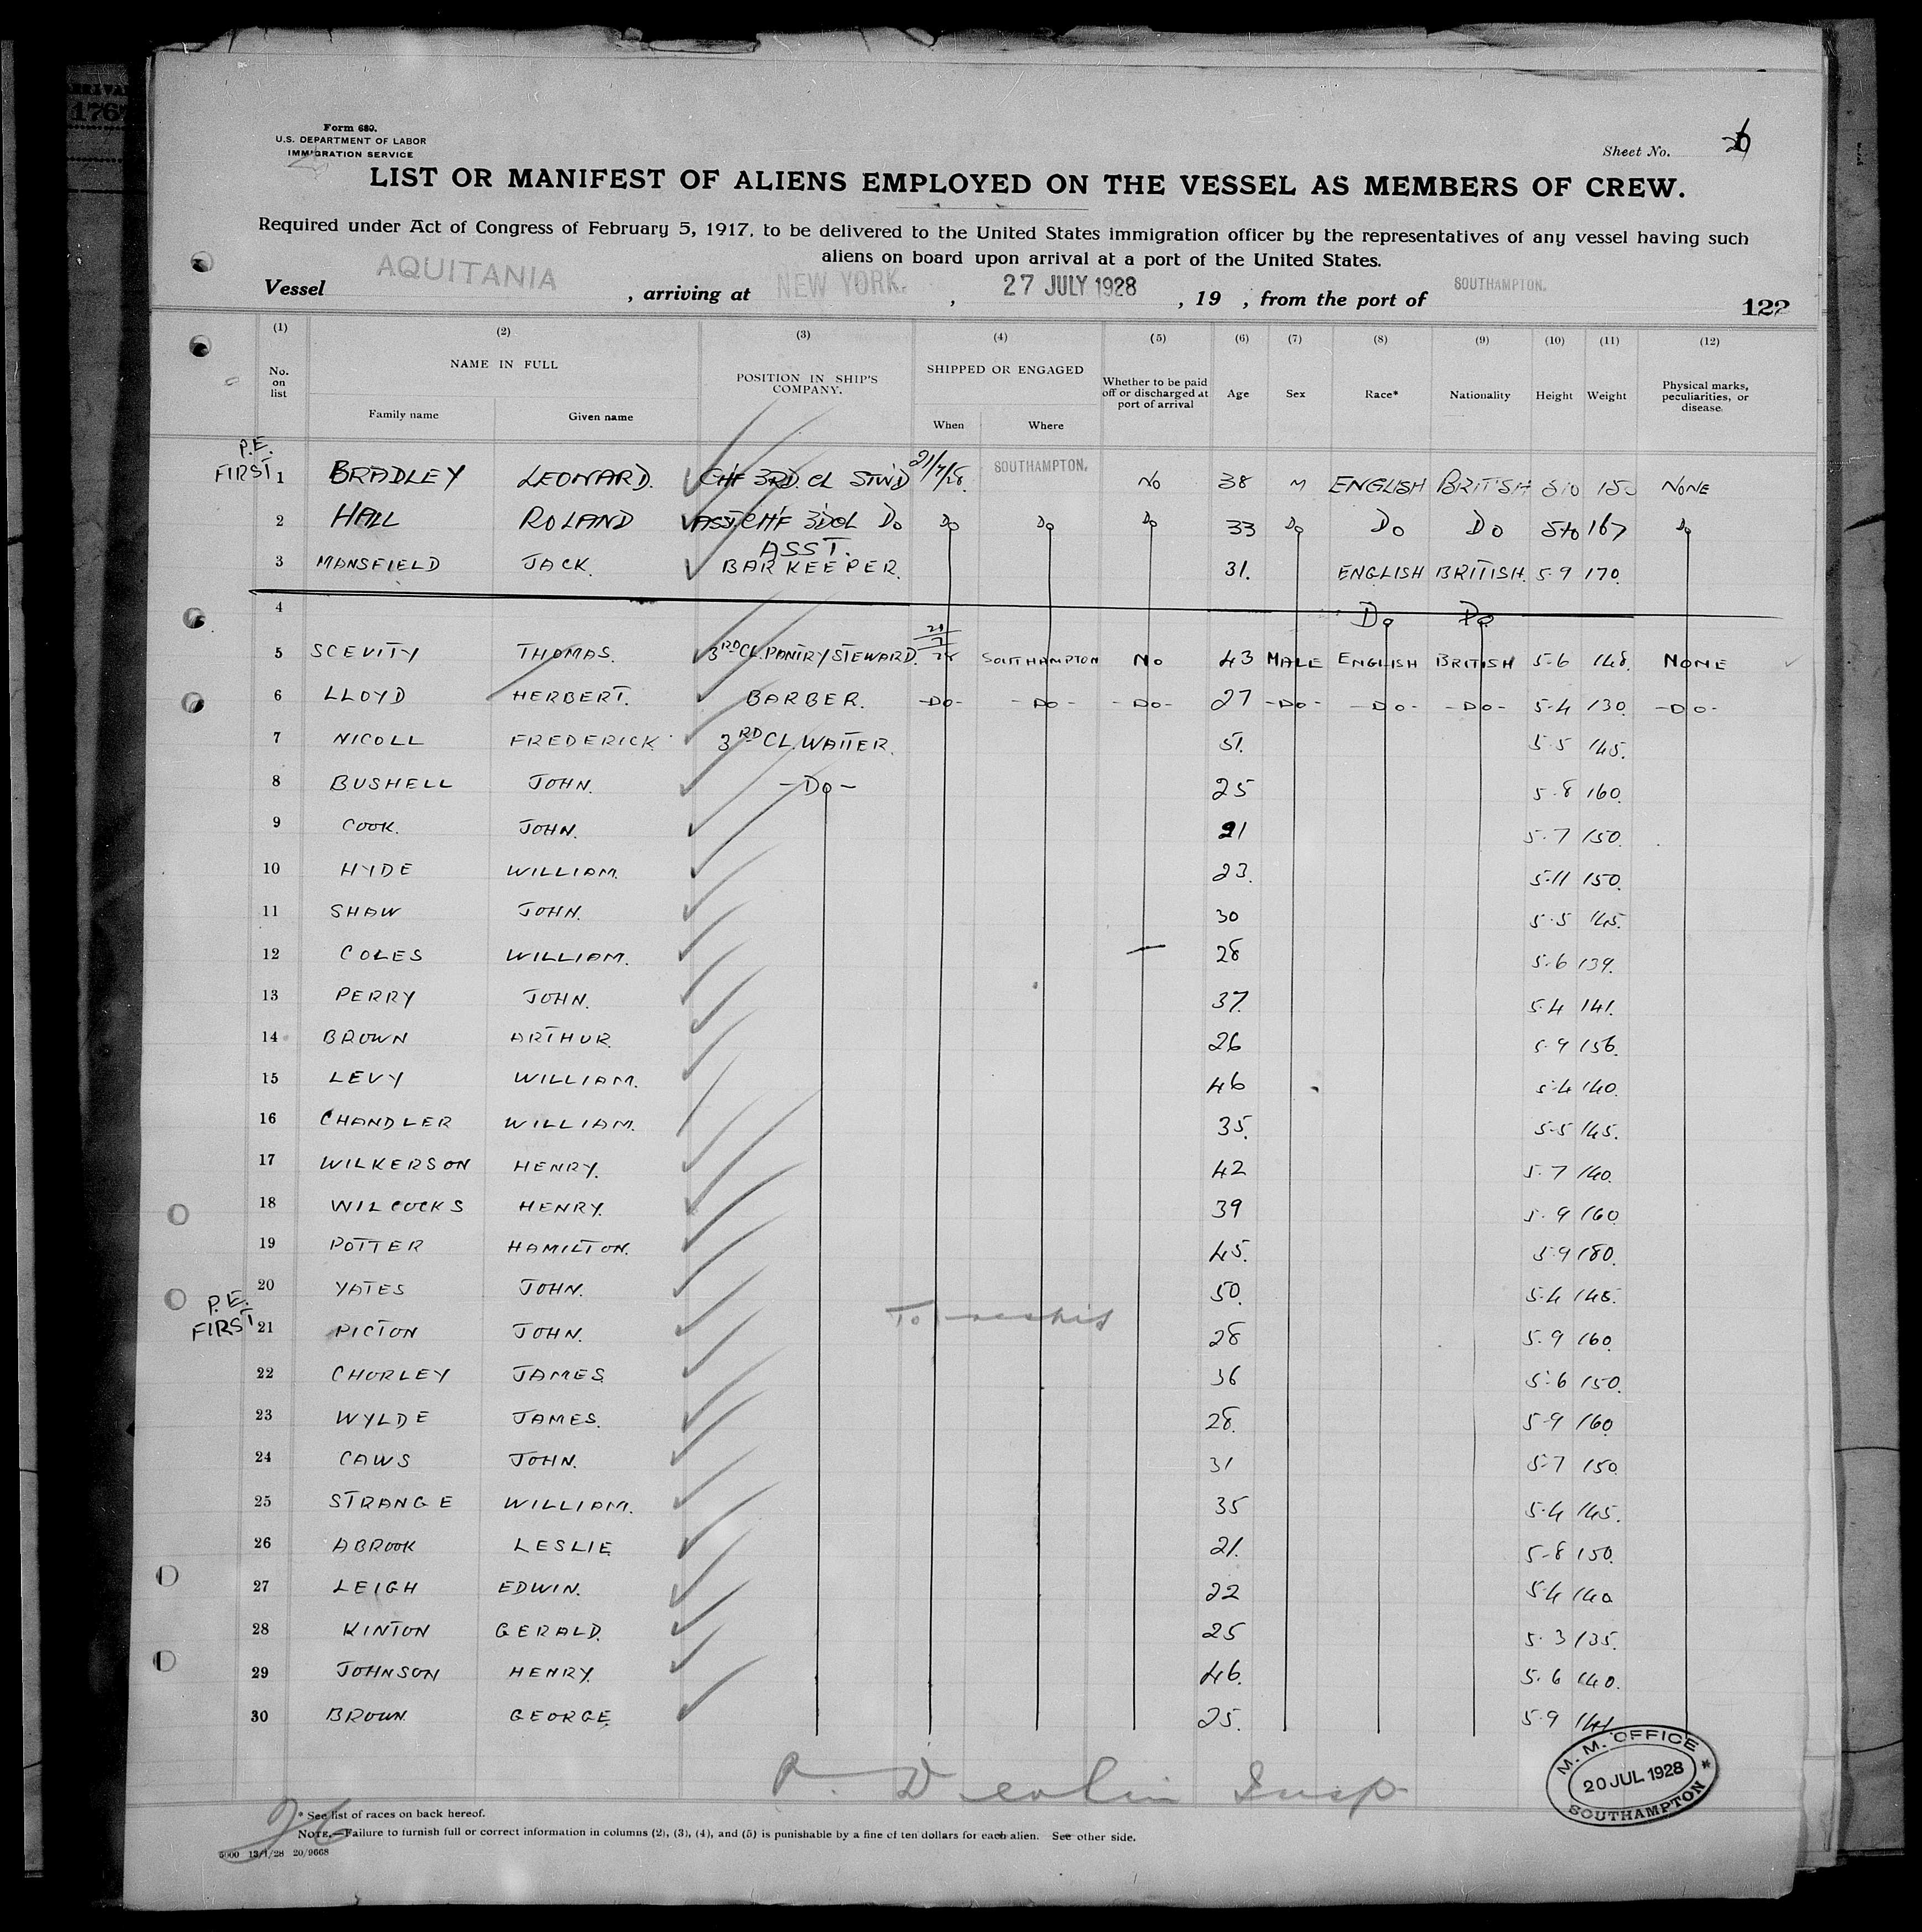 RRIVA
176
Form 680.
U.S. DEPARTMENT OF LABOR
IMMIGRATION SERVICE
Sheet No.
LIST OR MANIFEST OF ALIENS EMPLOYED ON THE VESSEL AS MEMBERS OF CREW.
Required under Act of Congress of February 5, 1917, to be delivered to the United States immigration officer by the representatives of any vessel having such
aliens on board upon arrival at a port of the United States.
Vessel AQUITANIA , arriving at NEW YORK. , 27 JULY 1928 , 19 , from the port of SOUTHAMPTON.
122
(1) (2) (3) (4) (5) (6) (7) (8) (9) (10) (11) (12)
No. on list NAME IN FULL Family name Given name POSITION IN SHIP'S COMPANY. SHIPPED OR ENGAGED When Where Whether to be paid off or discharged at port of arrival Age Sex Race* Nationality Height Weight Physical marks, peculiarities, or disease.
P.E.
FIRST 1 BRADLEY LEONARD. CHF 3RD. CL STWD 21/7/28. SOUTHAMPTON. No 38 M ENGLISH BRITISH 510 NONE
2 HALL ROLAND ASST CHF 3DCL Do Do Do Do 33 Do Do Do 5 10 167 Do
3 MANSFIELD JACK. ASST. BAR KEEPER. 31. ENGLISH BRITISH. 5.9 170.
4 Do Do
5 SCEVITY THOMAS. 3RD CL. PANTRY STEWARD. 21/7/28 SOUTHAMPTON No 43 MALE ENGLISH BRITISH 5-6 148. NONE
6 LLOYD HERBERT. BARBER. -Do- -Do- -Do- 27 -Do- -Do- -Do- 5-4 130. -Do-
7 NICOLL FREDERICK 3RD CL. WAITER. 51. 5.5 145.
8 BUSHELL JOHN. -Do- 25 5.8 160.
9 COOK. JOHN. 21 5.7 150.
10 HYDE WILLIAM. 23. 5-11 150.
11 SHAW JOHN. 30 5.5 145.
12 COLES WILLIAM. 28 5.6 139.
13 PERRY JOHN. 37. 5.4 141.
14 BROWN ARTHUR. 26 5.9 156.
15 LEVY WILLIAM. 46 5.4 140.
16 CHANDLER WILLIAM. 35. 5-5 145.
17 WILKERSON HENRY. 42 5.7 140.
18 WILCOCKS HENRY. 39 5.9 160
19 POTTER HAMILTON. 45. 5.9 180.
20 YATES JOHN. 50. 5.4 145.
P.E.
FIRST 21 PICTON JOHN. 28 5.9 160.
22 CHORLEY JAMES 36 5.6 150.
23 WYLDE JAMES. 28. 5-9 160
24 CAWS JOHN. 31 5.7 150.
25 STRANGE WILLIAM. 35 5.4 145.
26 ABROOK LESLIE 21. 5-8 150.
27 LEIGH EDWIN. 22 5.4 140
28 KINTON GERALD. 25 5.3 135.
29 JOHNSON HENRY. 46. 5.6 140.
30 BROWN. GEORGE. 25. 5.9 141.
Devlin Insp
M. M. OFFICE
20 JUL 1928
SOUTHAMPTON
26
* See list of races on back hereof.
NOTE.—Failure to furnish full or correct information in columns (2), (3), (4), and (5) is punishable by a fine of ten dollars for each alien. See other side.
5000 13/1/28 20/9668